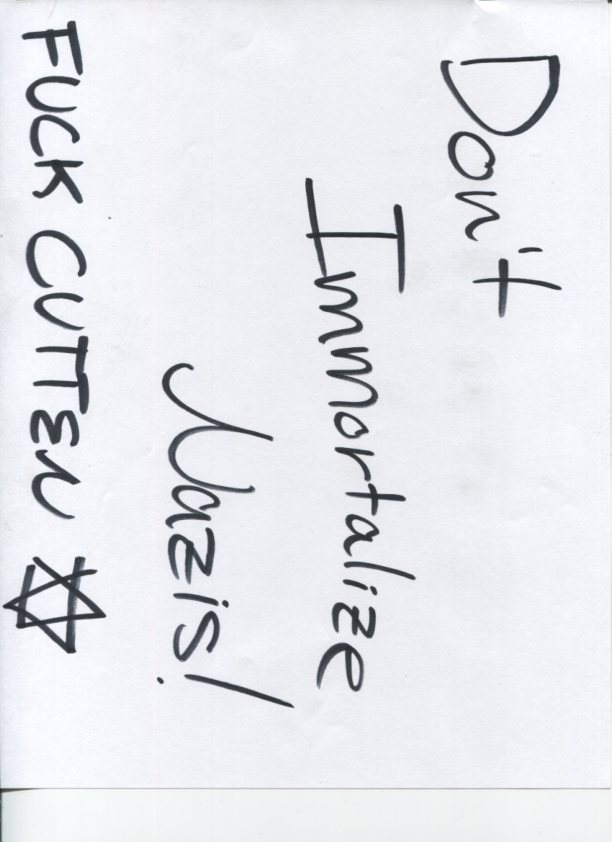 Don't
Immortalize
Nazis!
FUCK CUTTEN ✡